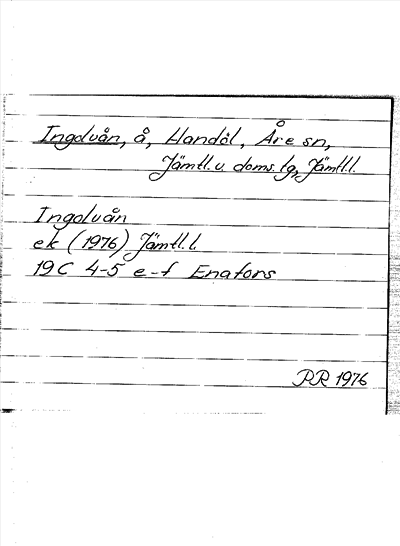 Ingolvån, å, Handöl, Åre sn,
Jämtl. v. doms. lg, Jämtl.l.
Ingolvån
ek (1976) Jämtl. l.
19C 4-5 e-f Enafors
PR 1976